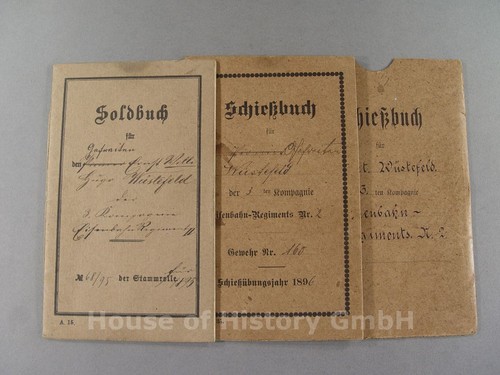 Soldbuch
für
Gefreiten
den Ernst Otto
Hugo Wüstefeld
der
3. Kompagnie
Eisenbahn Regiment
№ 68/95 der Stammrolle
A. 15.
Schießbuch
für
Gefreiter
Wüstefeld
der 3 ten Kompagnie
Eisenbahn-Regiments Nr. 2
Gewehr Nr. 160
Schießübungsjahr 1896
hießbuch
für
t. Wüstefeld.
3. ten Kompagnie
enbahn-
giments N. 2.
House of History GmbH